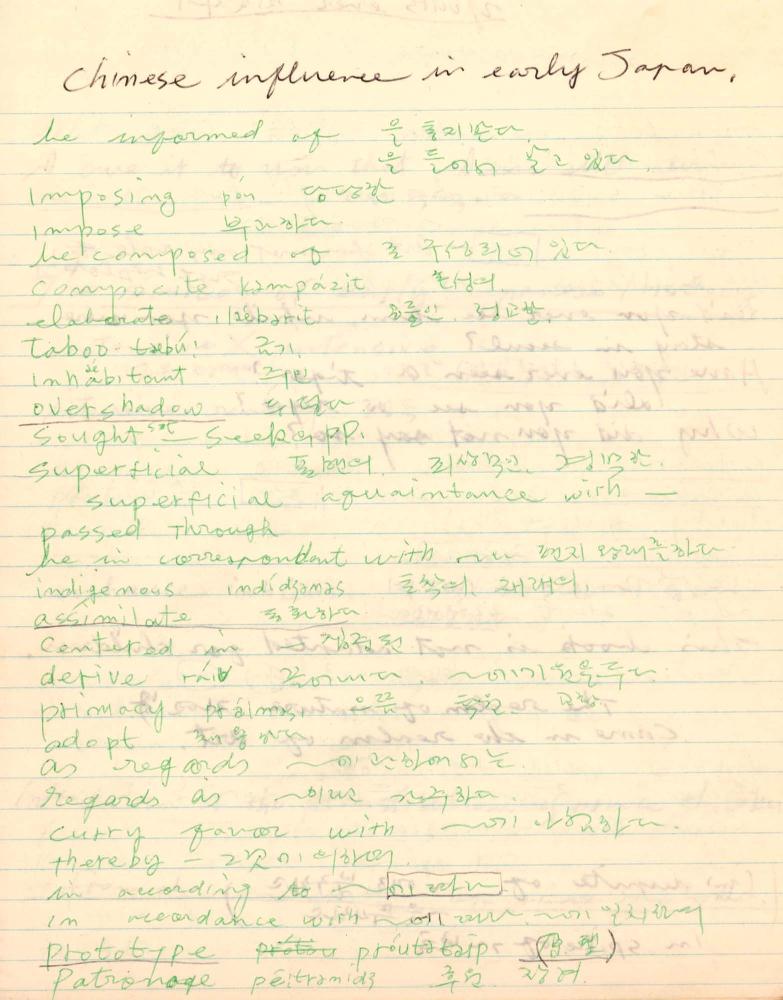 Chinese influence in early Japan.
be informed of 을 통지받다.
을 들어서 알고 있다.
Imposing 당당한
impose 부과하다.
be composed of 로 구성되어 있다.
composite kəmpázit 혼성의.
elaborate ilǽbərit 공들인 정교한.
Taboo təbú: 금기.
inhabitant 주민
overshadow
sought — seek pp.
superficial 표면의. 피상적인. 경박한.
superficial aquaintance with —
passed Through
be in correspondent with ~ 편지 왕래를 하다
indigenous indídʒənəs 토착의, 재래의.
assimilate 동화하다
centered in
derive ráiv 끌어내다. ~에 기원을 두다.
primacy práiməsi 으뜸
adopt 채용하다
as regards ~에 관하여서는.
regards as ~이라고 간주하다.
curry favor with ~에 아첨하다.
thereby — 그것에 의하여.
in according to ~에 따라
in accordance with ~에 따라. ~에 일치하여
prototype próutətàip
Patronage péitrənidʒ 후원 장려.